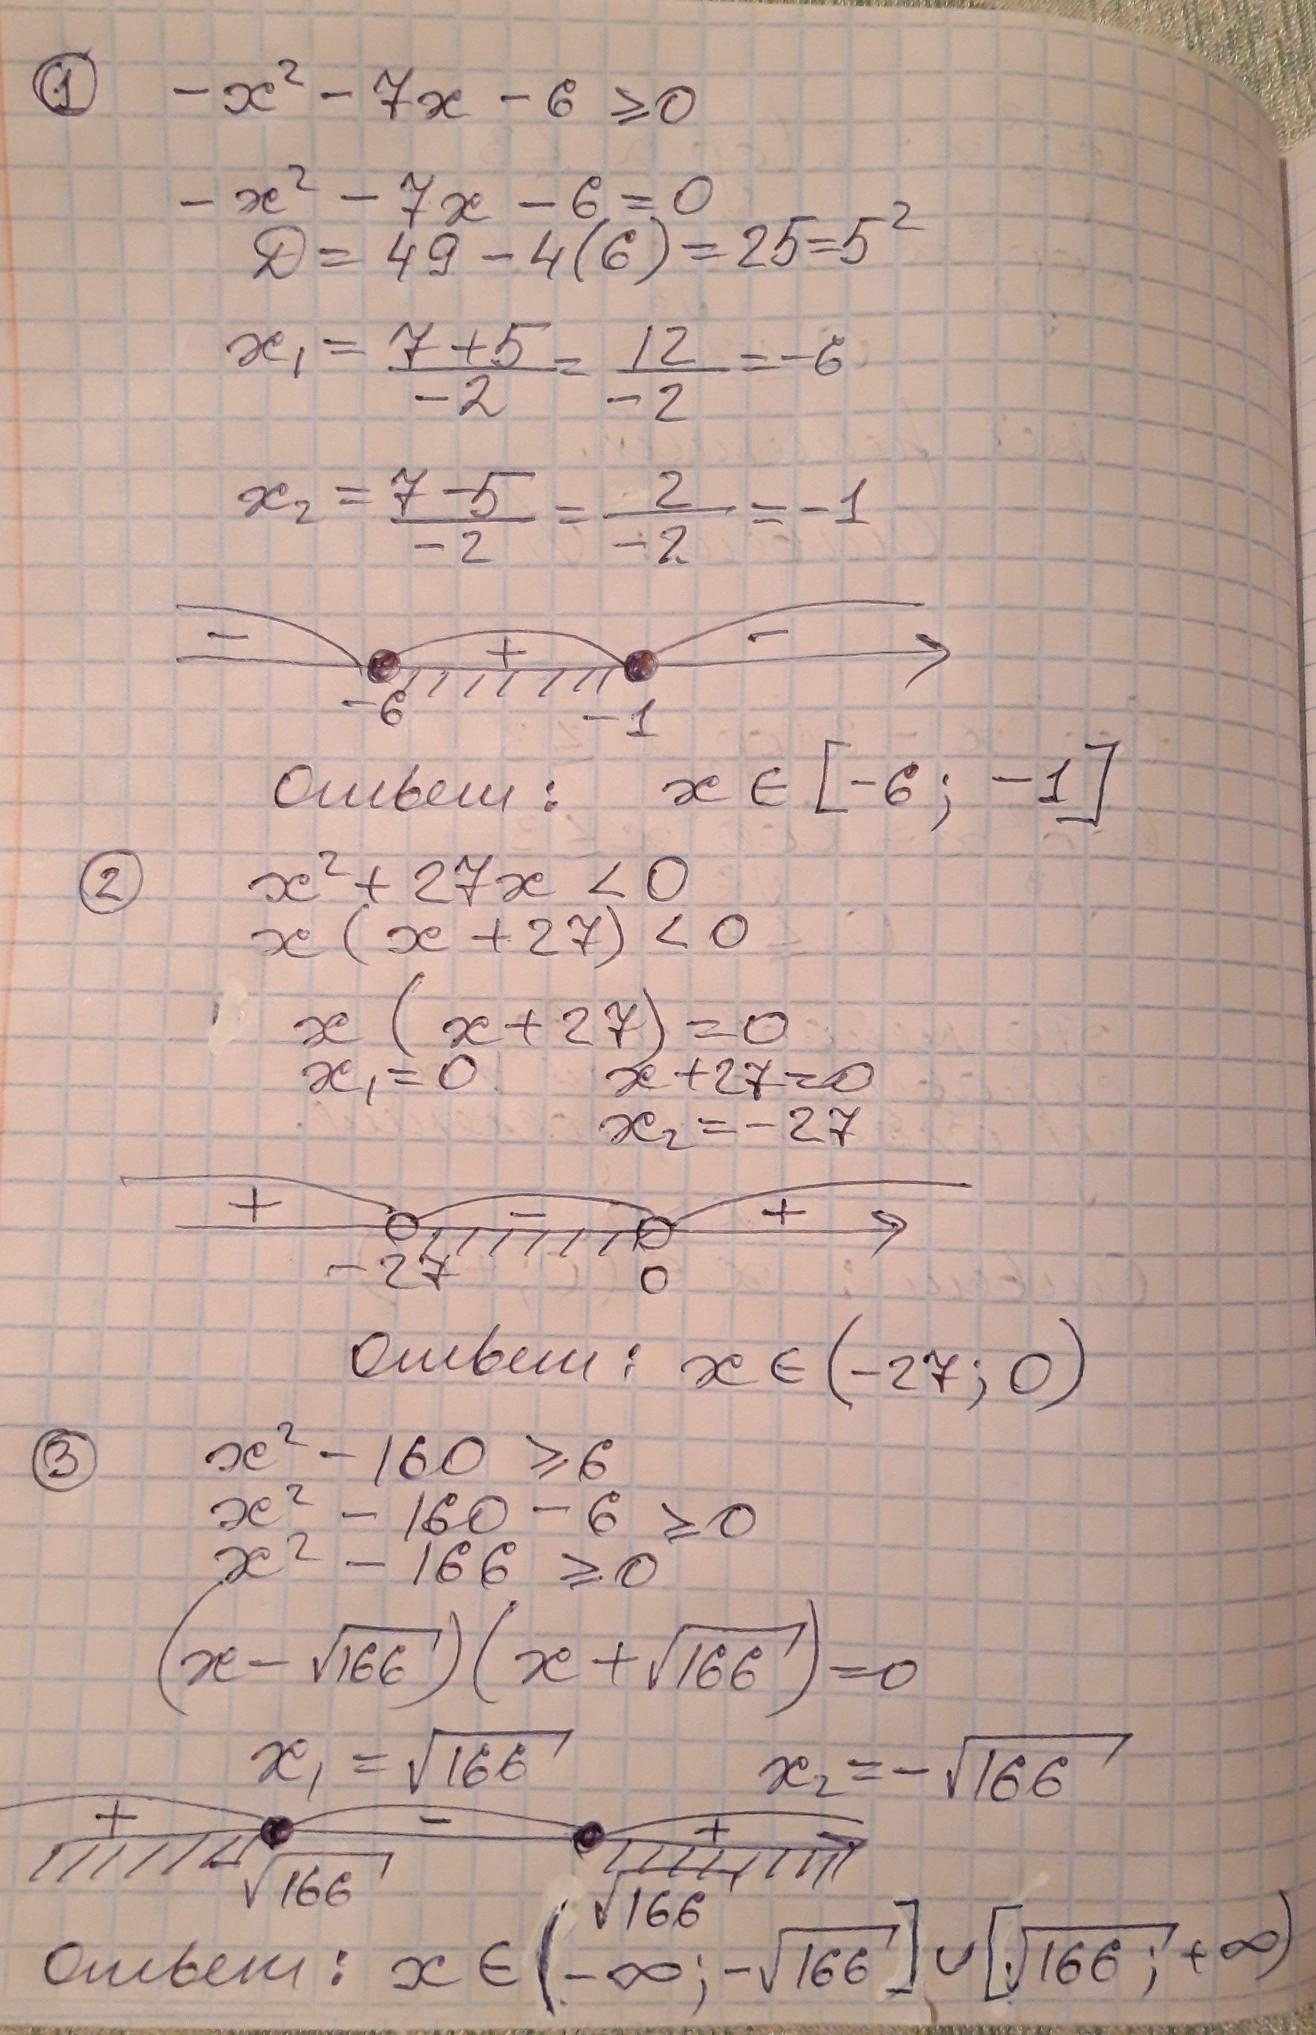 ① -x² - 7x - 6 ⩾ 0
-x² - 7x - 6 = 0
D = 49 - 4(6) = 25 = 5²
x₁ = (7+5)/(-2) = 12/(-2) = -6
x₂ = (7-5)/(-2) = 2/(-2) = -1
- + -
-6 -1
Ответ: x ∈ [-6; -1]
② x² + 27x < 0
x(x + 27) < 0
x(x + 27) = 0
x₁ = 0 x + 27 = 0
x₂ = -27
+ - +
-27 0
Ответ: x ∈ (-27; 0)
③ x² - 160 ⩾ 6
x² - 160 - 6 ⩾ 0
x² - 166 ⩾ 0
(x - √166)(x + √166) = 0
x₁ = √166 x₂ = -√166
+ - +
√166 √166
Ответ: x ∈ (-∞; -√166] ∪ [√166; +∞)